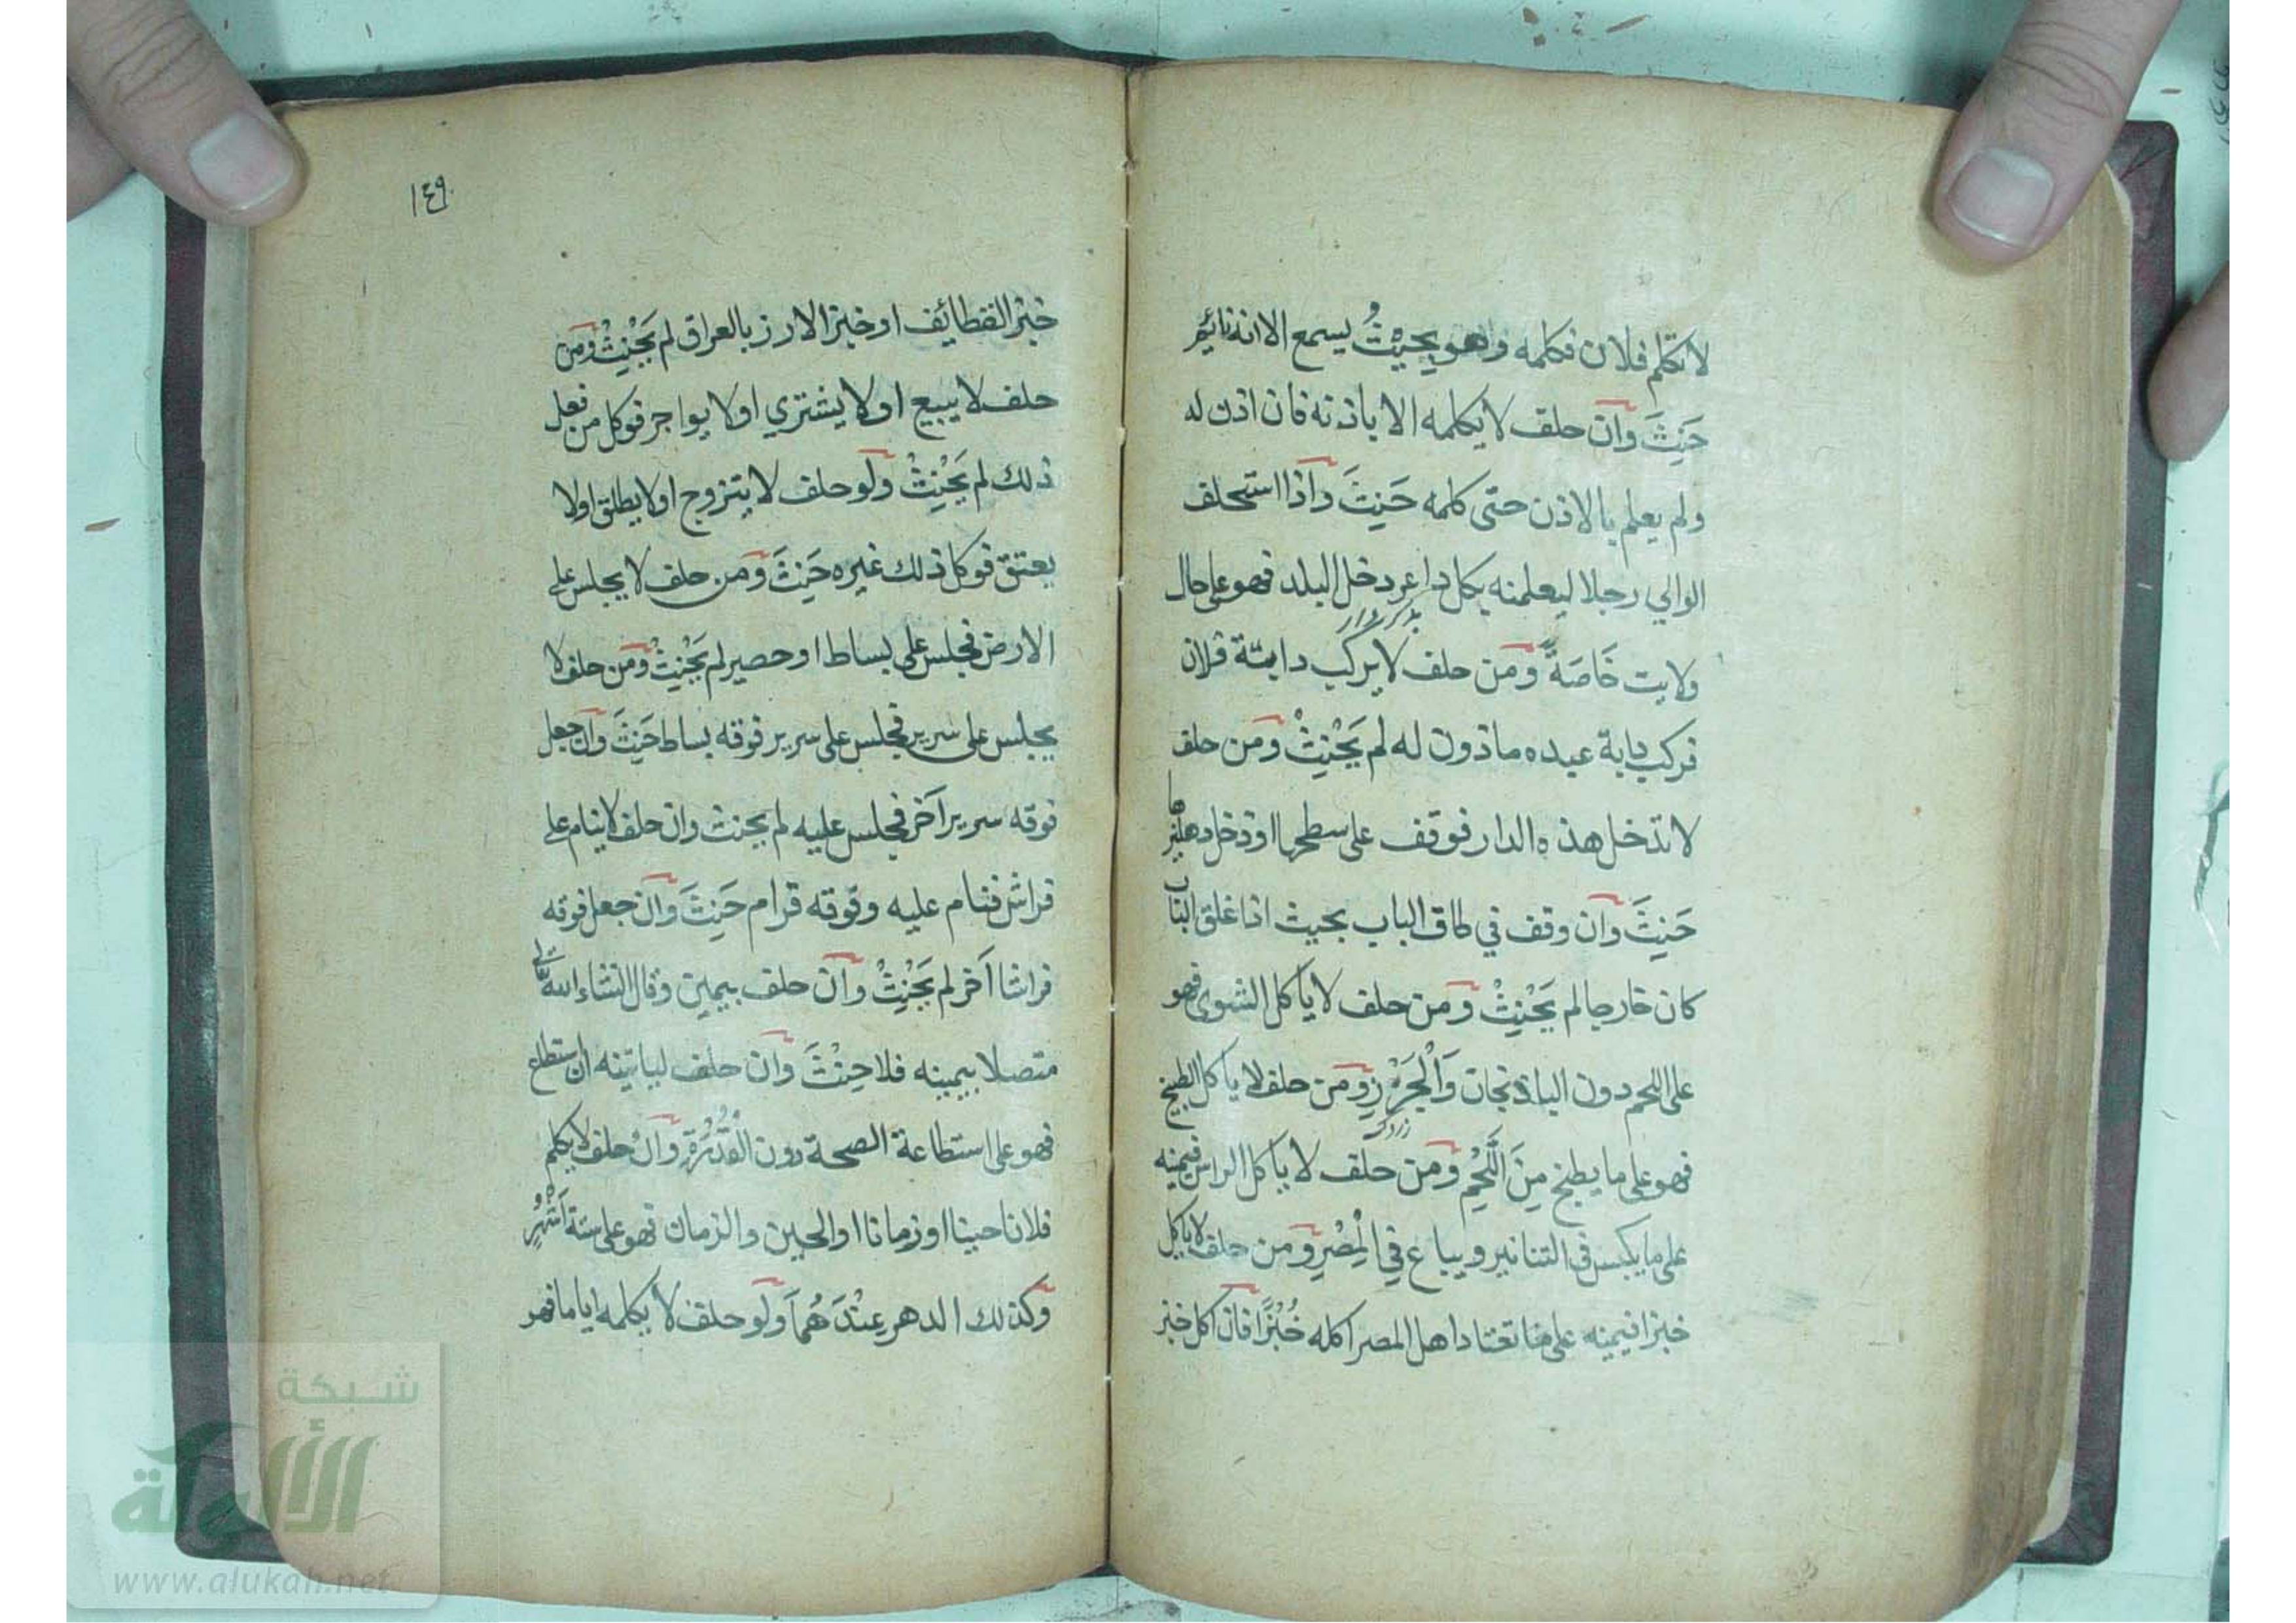 لا تكلم فلان فكلمه وهو بحيث يسمع الا انه نائم
حَنِثَ وان حلف لا يكلمه الا باذنه فان اذن له
ولم يعلم بالاذن حتى كلمه حَنِثَ واذا استحلف
الوالي رجلا ليعلمنه بكل داعر دخل البلد فهو على حال
ولايت خَاصَةً ومن حلف لا يركب دابة فلان
فركب دابة عبده ماذون له لم يَحْنِثْ ومن حلف
لا تدخل هذه الدار فوقف على سطحها او دخل دهليزها
حَنِثَ وان وقف في طاق الباب بحيث اذا غلق الباب
كان خارجا لم يَحْنِثْ ومن حلف لا يأكل الشوى فهو
على اللحم دون الباذنجان وَالْجَزَرِ ومن حلف لا يأكل الطبيخ
فهو على ما يطبخ مِنَ اللَّحْمِ ومن حلف لا يأكل الراس فيمينه
على ما يكبس في التنانير ويباع في الْمِصْرِ ومن حلف لا يأكل
خبزا فيمينه على ما تعتاد اهل المصر اكله خُبْزًا فان اكل خبز
١٤٩
خبز القطائف او خبز الارز بالعراق لم يَحْنِثْ ومن
حلف لا يبيع او لا يشتري او لا يواجر فوكل من فعل
ذلك لم يَحْنِثْ ولو حلف لا يتزوج او لا يطلق او لا
يعتق فوكل ذلك غيره حَنِثَ ومن حلف لا يجلس على
الارض فجلس على بساط او حصير لم يَحْنِثْ ومن حلف لا
يجلس على سرير فجلس على سرير فوقه بساط حَنِثَ وان جعل
فوقه سرير آخر فجلس عليه لم يحنث وان حلف لا ينام على
فراش فنام عليه وفوقه قرام حَنِثَ وان جعل فوقه
فراشا آخر لم يَحْنِثْ وان حلف بيمين وقال انشاء الله تعالى
متصلا بيمينه فلا حِنْثَ وان حلف لياتينه ان استطاع
فهو على استطاعة الصحة دون الْقُدْرَةِ وان حلف لا يكلم
فلانا حينا او زمانا او الحين والزمان فهو على ستة اَشْهُرٍ
وكذلك الدهر عِنْدَهُمَا ولو حلف لا يكلمه اياما فهو
شبكة
الألوكة
www.alukah.net